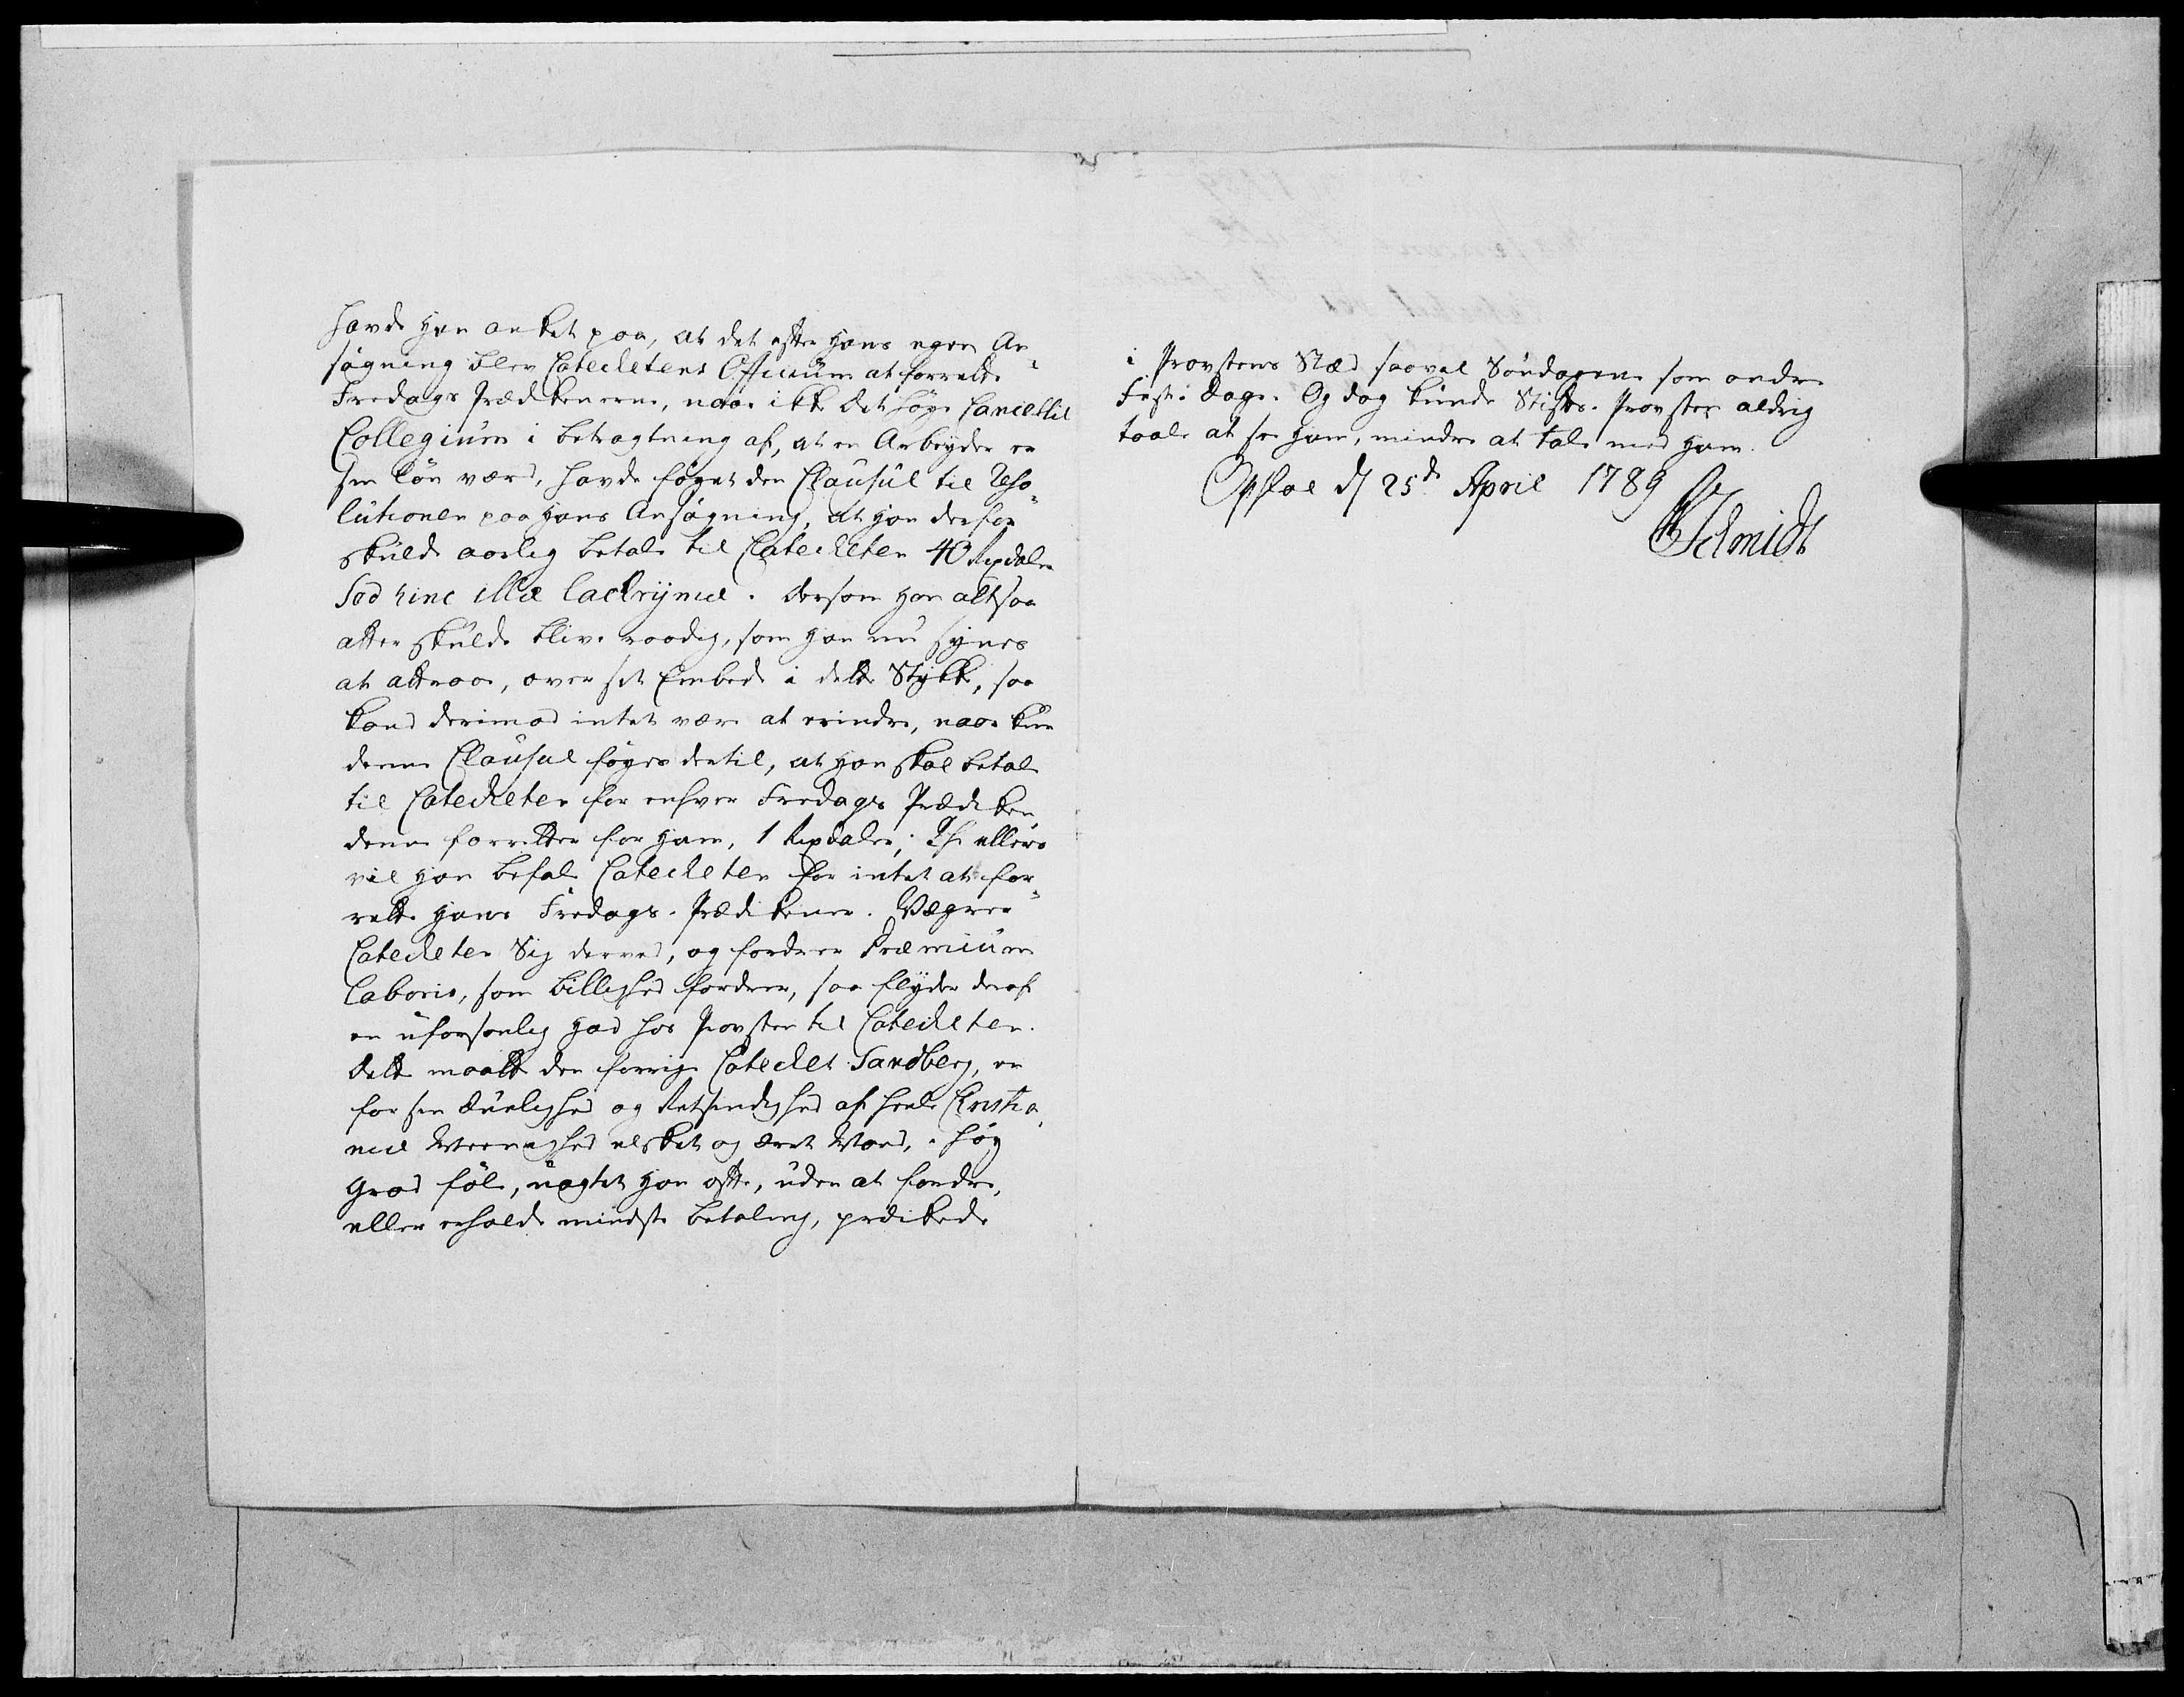 havde han anket paa, at det efter hans egen An-
søgning blev Catechetens Officium at forrette
Fredags Prædikenerne, naar ikke det høye Cancellie
Collegium i betragtning af, at en Arbeyder er
sin Løn værd, havde føyet den Clausul til Reso-
lutionen paa hans Ansøgning, at han derfor
skulde aarlig betale til Catecheten 40 Rixdaler
Sed hinc illæ lachrymæ. Dersom han altsaa
atter skulde blive raadig, som han nu synes
at attraae, over sit Embede i dette Stykke, saa
kand derimod intet være at erindre, naar kun
denne Clausul føyes dertil, at han skal betale
til Catecheten for enhver Fredags Prædiken,
denne forretter for ham, 1 Rixdaler; Thi ellers
vil han befale Catecheten for intet at for-
rette hans Fredags-Prædikener. Vægrer
Catecheten Sig derved, og fordrer Præmium
Laboris, som billighed fordrer, saa flyder deraf
en uforsonlig had hos Provsten til Catecheten.
Dette maatte den forrige Catechet Sandberg, en
for sin Duelighed og Retsindighed af heele Christia-
niæ Meenighed elsket og æret Mand, i høy
Grad føle, uagtet han ofte, uden at fordre,
eller erholde mindste betaling, prædikede
i Provstens Stæd saavel Søndagene som andre
Fest-Dage. Og dog kunde Stifts-Provsten aldrig
taale at see ham, mindre at tale med ham.
Opsloe d 25de April 1789
Schmidt